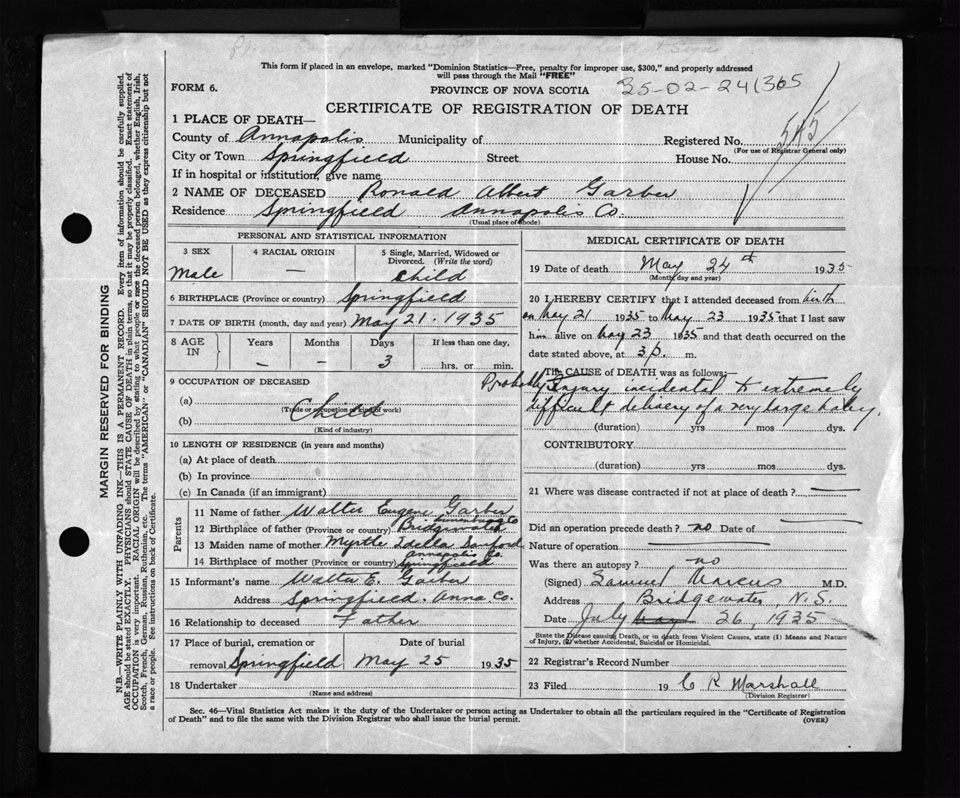 This form if placed in an envelope, marked "Dominion Statistics—Free, penalty for improper use, $300," and properly addressed
will pass through the Mail "FREE"
FORM 6.
PROVINCE OF NOVA SCOTIA
35-02-241365
CERTIFICATE OF REGISTRATION OF DEATH
1 PLACE OF DEATH—
County of Annapolis Municipality of Registered No. 545
(For use of Registrar General only)
City or Town Springfield Street House No.
If in hospital or institution, give name
2 NAME OF DECEASED Ronald Albert Garber
Residence Springfield Annapolis Co.
(Usual place of abode)
PERSONAL AND STATISTICAL INFORMATION
3 SEX 4 RACIAL ORIGIN 5 Single, Married, Widowed or
Divorced. (Write the word)
Male — Child
6 BIRTHPLACE (Province or country) Springfield
7 DATE OF BIRTH (month, day and year) May 21. 1935
8 AGE IN Years Months Days If less than one day,
— — 3 hrs. or min.
9 OCCUPATION OF DECEASED
(a)
(Trade or occupation or kind of work)
Child
(b)
(Kind of industry)
10 LENGTH OF RESIDENCE (in years and months)
(a) At place of death
(b) In province
(c) In Canada (if an immigrant)
Parents
11 Name of father Walter Eugene Garber
12 Birthplace of father (Province or country) Bridgewater Lunenburg Co
13 Maiden name of mother Myrtle Idella Sanford
14 Birthplace of mother (Province or country) Springfield Annapolis Co.
15 Informant's name Walter E. Garber
Address Springfield. Anna Co.
16 Relationship to deceased Father
17 Place of burial, cremation or Date of burial
removal Springfield May 25 1935
18 Undertaker
(Name and address)
MEDICAL CERTIFICATE OF DEATH
19 Date of death May 24th 1935
(Month, day and year)
20 I HEREBY CERTIFY that I attended deceased from birth
on May 21 1935 to May 23 1935 that I last saw
him alive on May 23 1935 and that death occurred on
date stated above, at 3 p. m.
The CAUSE of DEATH was as follows:
Probably Injury incidental to extremely
difficult delivery of a very large baby.
(duration) yrs mos dys.
CONTRIBUTORY
(duration) yrs mos dys.
21 Where was disease contracted if not at place of death? —
Did an operation precede death? no Date of —
Nature of operation —
Was there an autopsy? no
(Signed) Samuel Marcus M.D.
Address Bridgewater, N.S.
Date July May 26, 1935
State the Disease causing Death, or in death from Violent Causes, state (1) Means and Nature
of Injury, (2) whether Accidental, Suicidal or Homicidal.
22 Registrar's Record Number
23 Filed 19 C R Marshall
(Division Registrar)
Sec. 46—Vital Statistics Act makes it the duty of the Undertaker or person acting as Undertaker to obtain all the particulars required in the "Certificate of Registration
of Death" and to file the same with the Division Registrar who shall issue the burial permit.
(OVER)
MARGIN RESERVED FOR BINDING
N.B.—WRITE PLAINLY WITH UNFADING INK—THIS IS A PERMANENT RECORD. Every item of information should be carefully supplied.
AGE should be stated EXACTLY. PHYSICIANS should STATE CAUSE OF DEATH in plain terms, so that it may be properly classified. Exact statement of
OCCUPATION is very important. RACIAL ORIGIN will be described by stating to what people or race the deceased person belonged, whether English, Irish,
Scotch, French, German, Russian, Ruthenian, etc. The terms "AMERICAN" or "CANADIAN" SHOULD NOT BE USED as they express citizenship but not
a race or people. See instructions on back of Certificate.